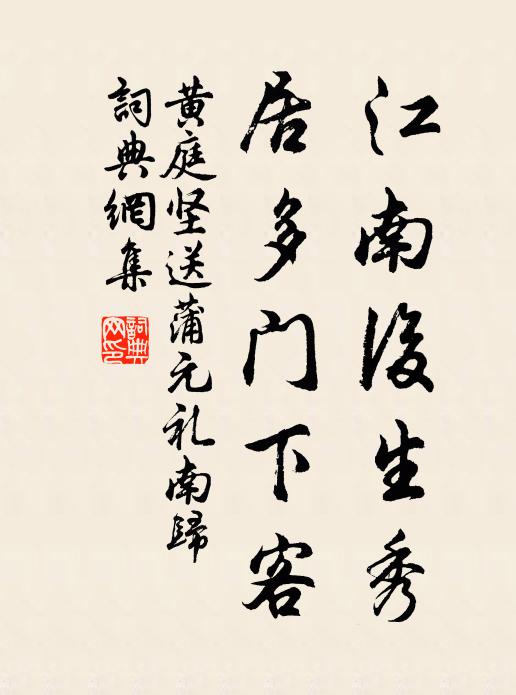 江南後生秀
居多门下客
黄庭坚送蒲元礼南歸
詞典網集
詞典网印